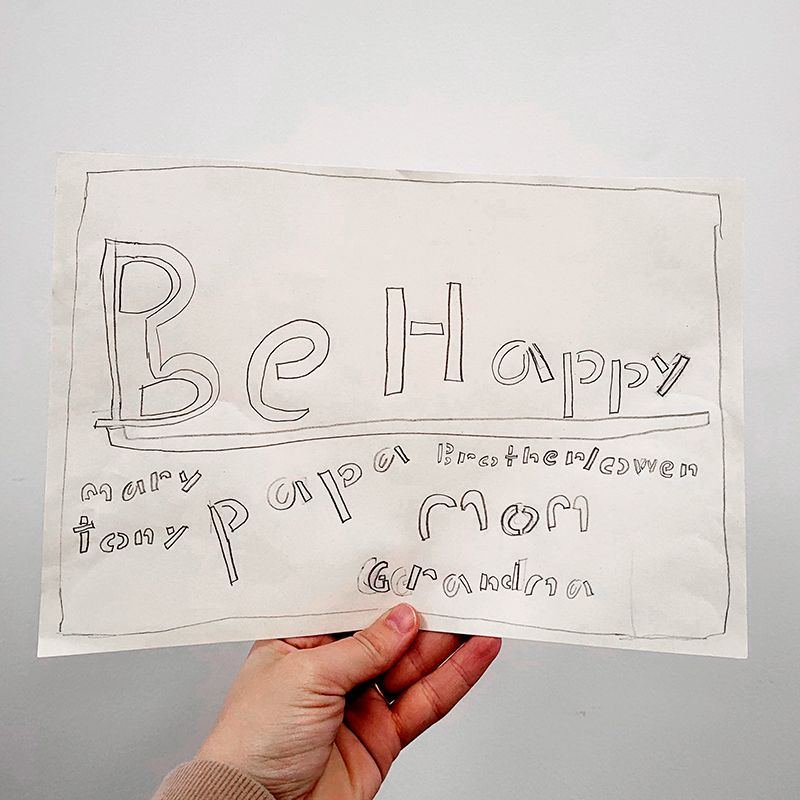 Be Happy
mary papa Brother/cowen
tony mom
Grandma